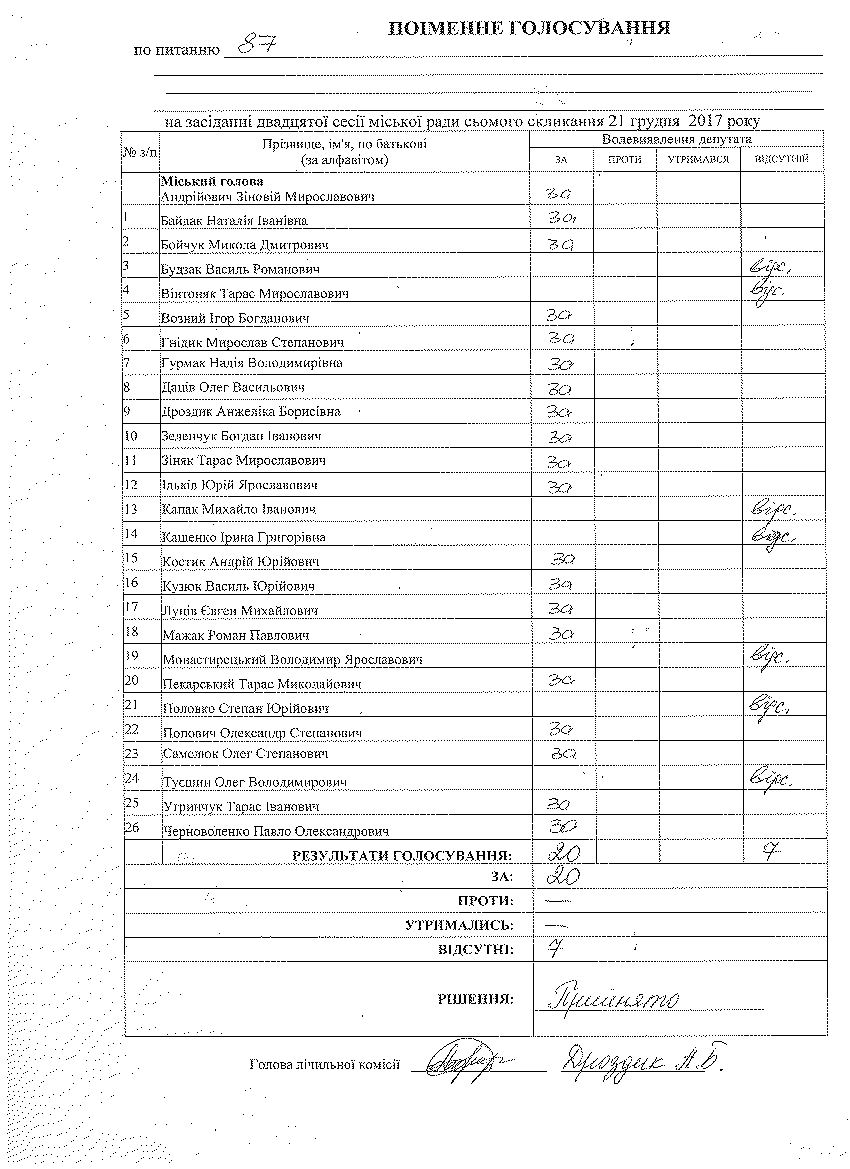 ПОІМЕННЕ ГОЛОСУВАННЯ
по питанню 87
на засіданні двадцятої сесії міської ради сьомого скликання 21 грудня 2017 року
№ з/п Прізвище, ім'я, по батькові (за алфавітом) Волевиявлення депутата
ЗА ПРОТИ УТРИМАВСЯ ВІДСУТНІЙ
Міський голова
Андрійович Зіновій Мирославович за
1 Байдак Наталія Іванівна за
2 Бойчук Микола Дмитрович за
3 Будзак Василь Романович відс.
4 Вінтоняк Тарас Мирославович відс.
5 Возний Ігор Богданович за
6 Гнідик Мирослав Степанович за
7 Гурмак Надія Володимирівна за
8 Даців Олег Васильович за
9 Дроздик Анжеліка Борисівна за
10 Зеленчук Богдан Іванович за
11 Зіняк Тарас Мирославович за
12 Ільків Юрій Ярославович за
13 Капак Михайло Іванович відс.
14 Кашенко Ірина Григорівна відс.
15 Костик Андрій Юрійович за
16 Кузюк Василь Юрійович за
17 Луців Євген Михайлович за
18 Мажак Роман Павлович за
19 Монастирецький Володимир Ярославович відс.
20 Пекарський Тарас Миколайович за
21 Половко Степан Юрійович відс.
22 Попович Олександр Степанович за
23 Самелюк Олег Степанович за
24 Тусшин Олег Володимирович відс.
25 Угринчук Тарас Іванович за
26 Черноволенко Павло Олександрович за
РЕЗУЛЬТАТИ ГОЛОСУВАННЯ: 20 7
ЗА: 20
ПРОТИ: —
УТРИМАЛИСЬ: —
ВІДСУТНІ: 7
РІШЕННЯ: Прийнято
Голова лічильної комісії Дроздик А.Б.